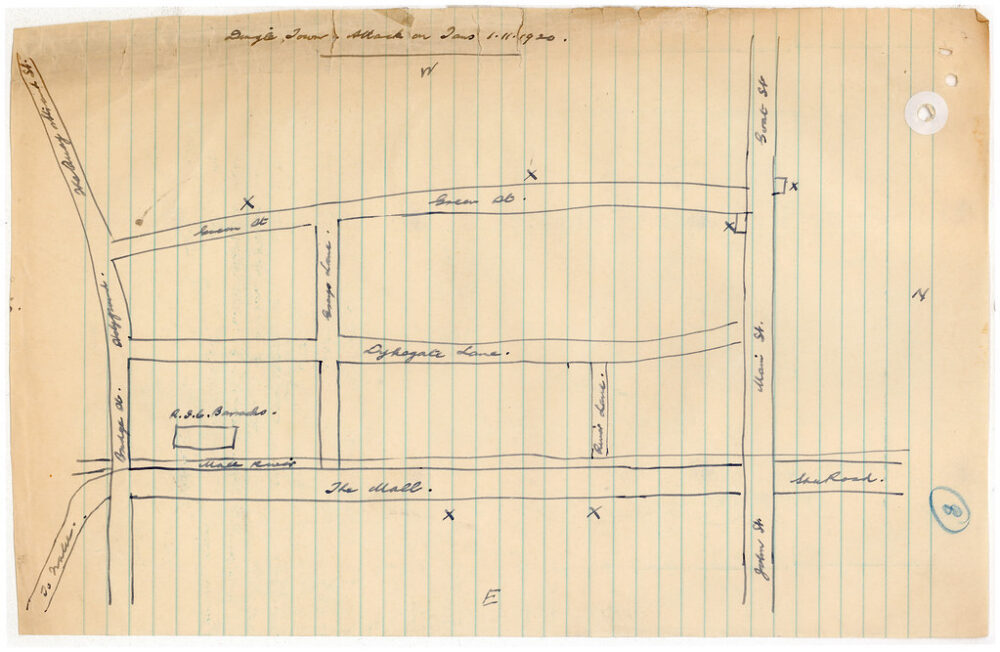 Dingle Town. Attack on Tans 1.11.1920.
W
Goat St
X
X
X
X
Green St
Green St.
Grays Lane.
N
Holyground.
Dykegate Lane.
Main St.
Bridge St.
R.I.C. Barracks.
River Lane.
Mall River
The Mall.
Spa Road.
8
X
X
John St.
To Tralee.
E